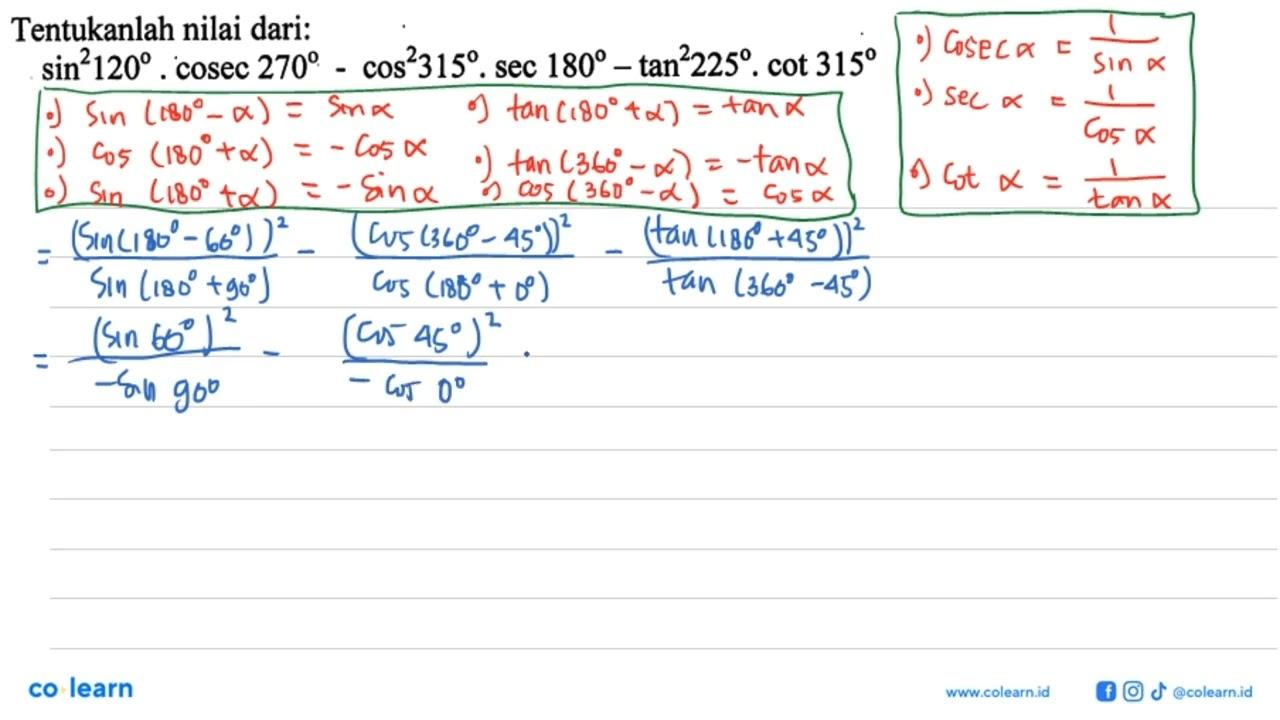 Tentukanlah nilai dari:
sin²120° . cosec 270° - cos²315°. sec 180° – tan²225°. cot 315°
•) sin (180° - α) = sin α •) tan (180° + α) = tan α
•) cos (180° + α) = - cos α •) tan (360° - α) = - tan α
•) sin (180° + α) = - sin α •) cos (360° - α) = cos α
•) cosec α = 1/sin α
•) sec α = 1/cos α
•) cot α = 1/tan α
= (sin(180° - 60°))²/sin (180° + 90°) - (cos (360° - 45°))²/cos (180° + 0°) - (tan (180° + 45°))²/tan (360° - 45°)
= (sin 60°)²/-sin 90° - (cos 45°)²/- cos 0° .
co learn
www.colearn.id
@colearn.id